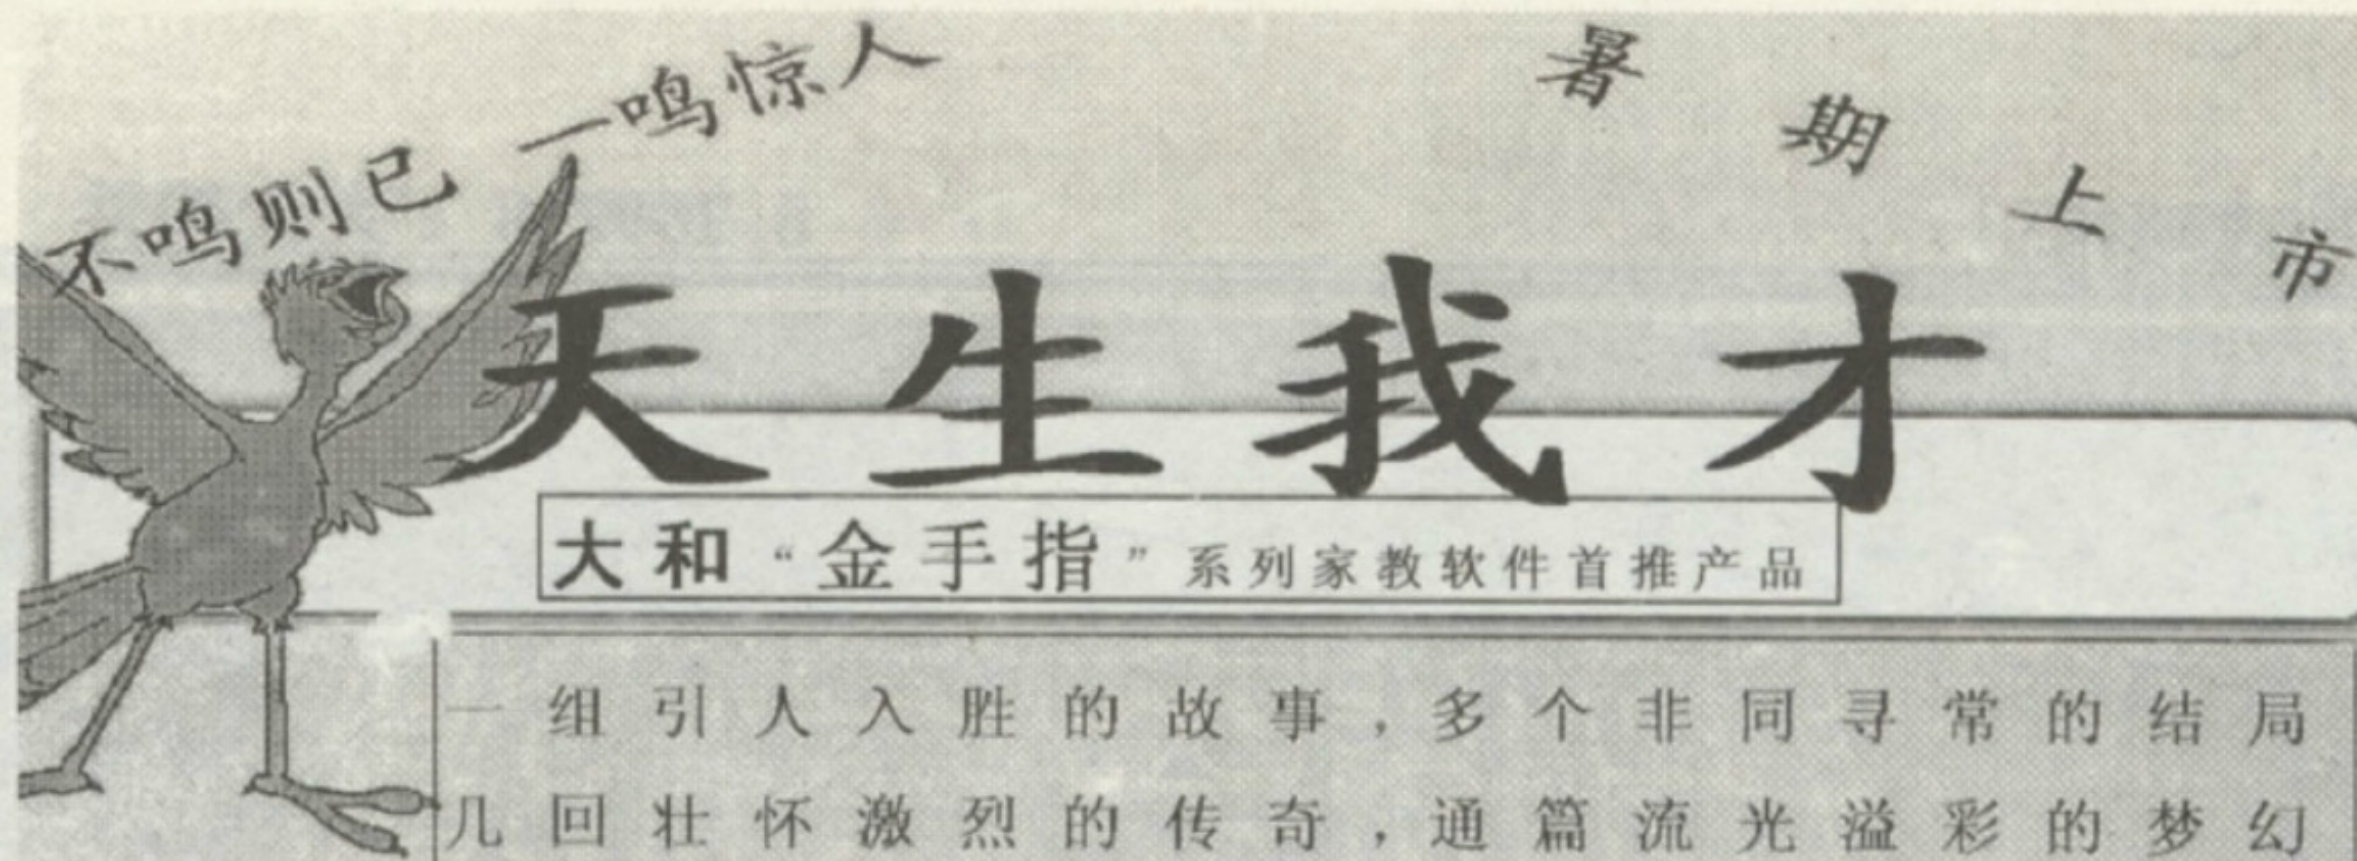 不鸣则已 一鸣惊人
暑期上市
天生我才
大和“金手指”系列家教软件首推产品
一组引人入胜的故事，多个非同寻常的结局
几回壮怀激烈的传奇，通篇流光溢彩的梦幻